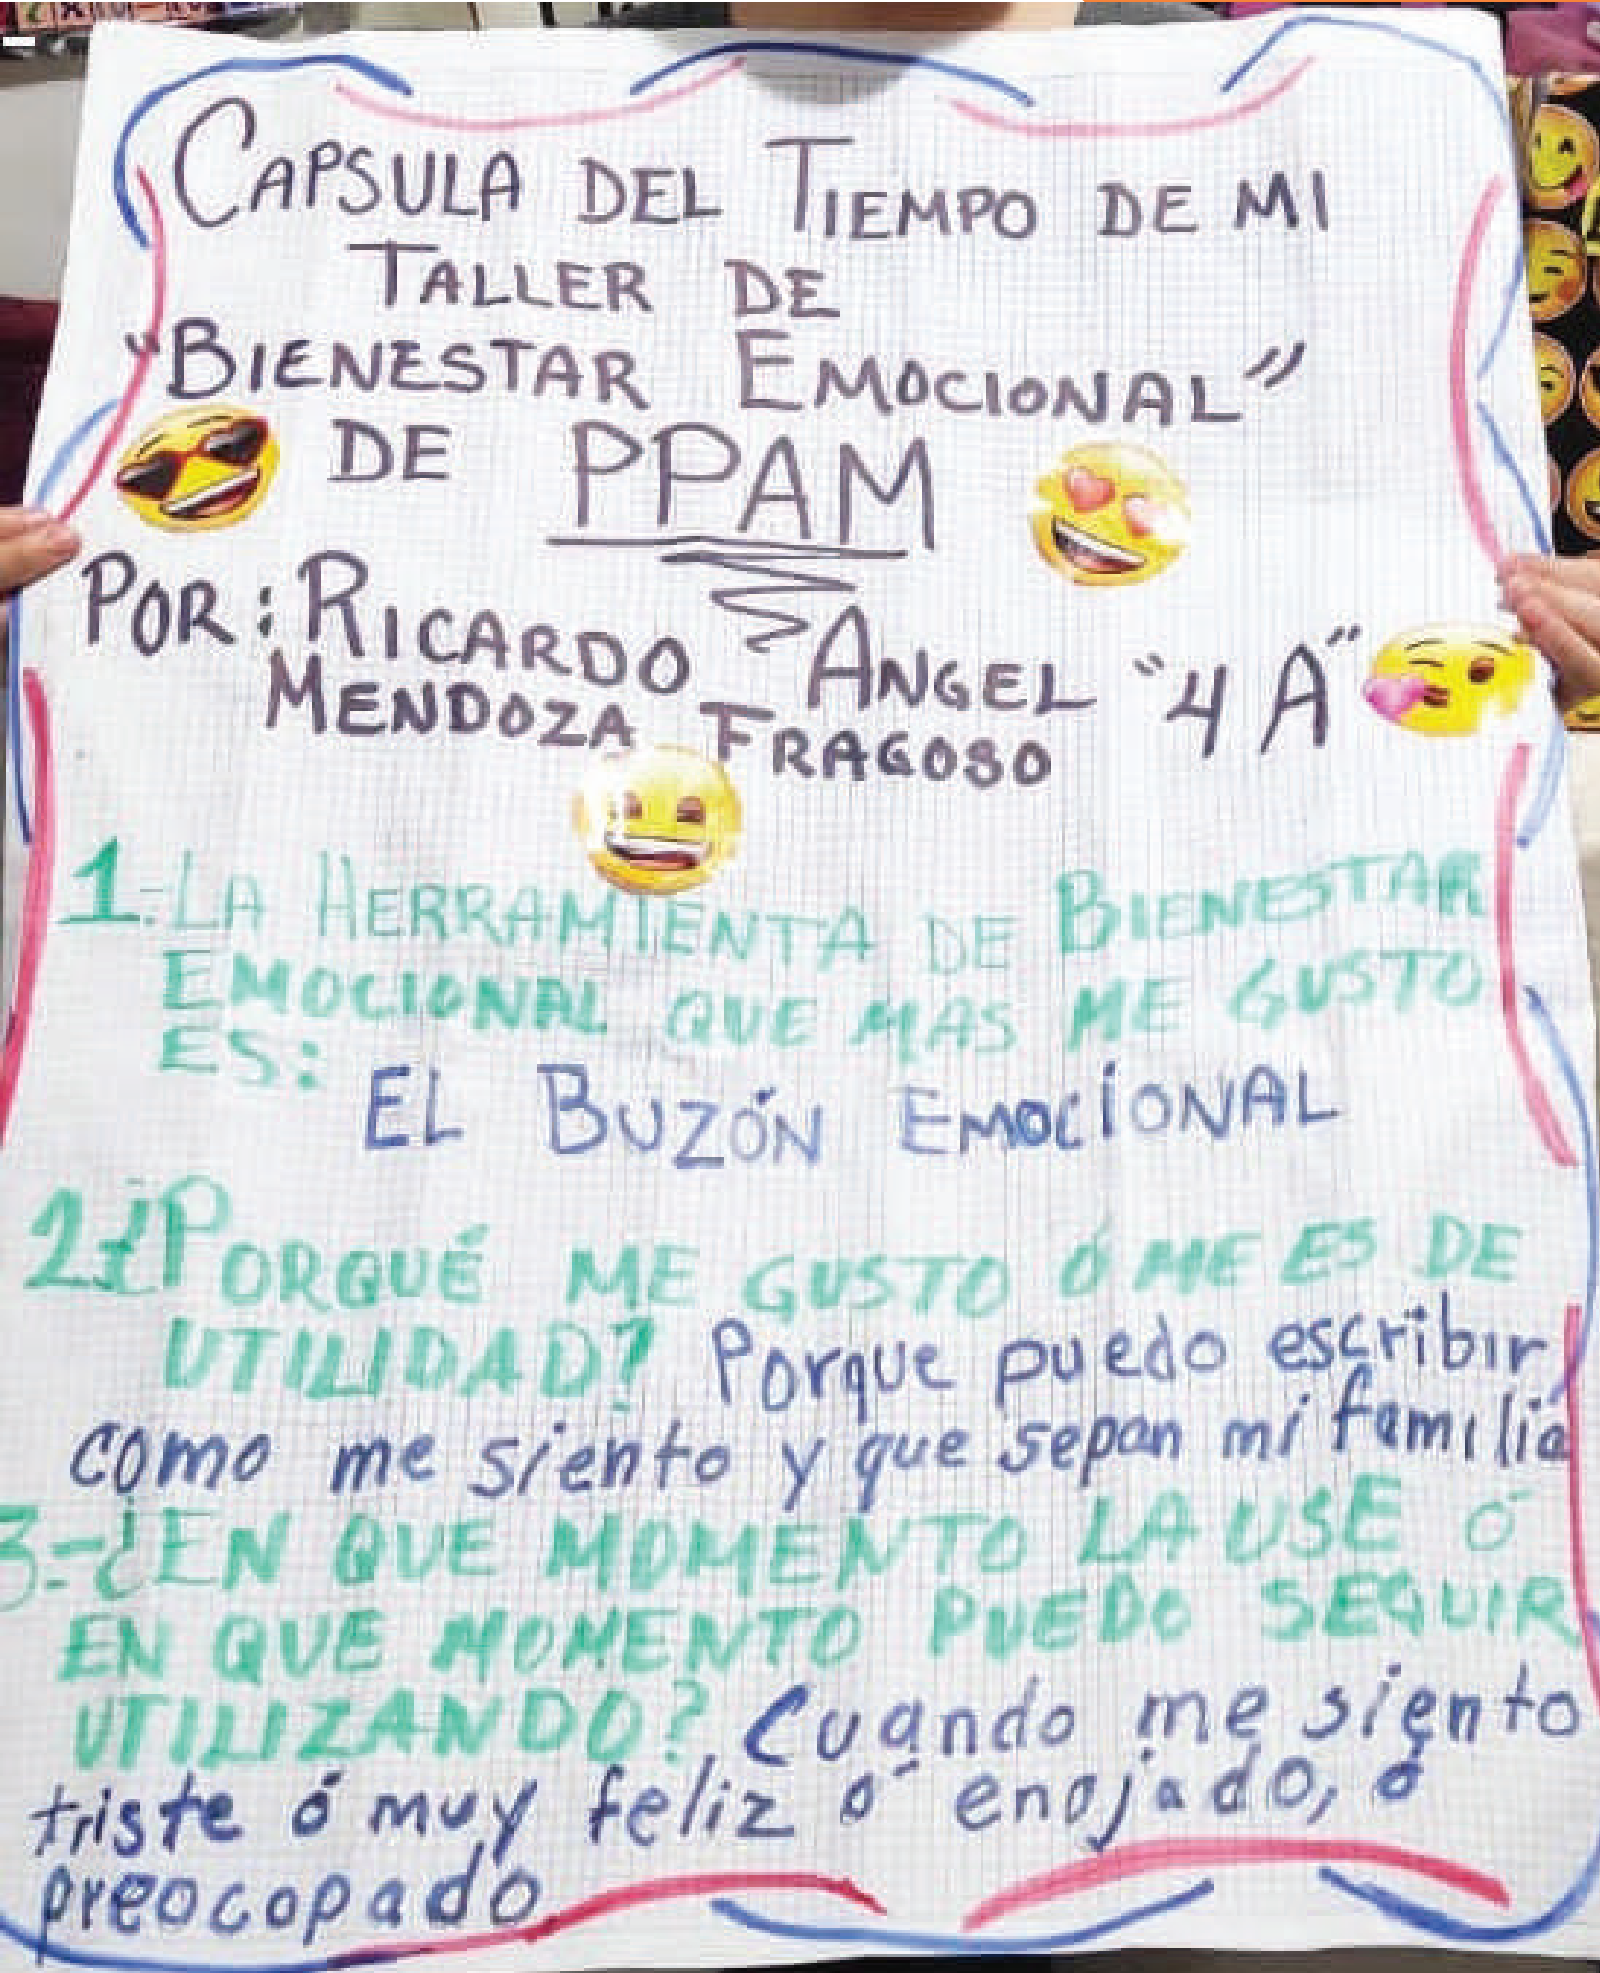 CAPSULA DEL TIEMPO DE MI
TALLER DE
"BIENESTAR EMOCIONAL"
DE PPAM
POR: RICARDO ANGEL "4 A"
MENDOZA FRAGOSO
1.-LA HERRAMIENTA DE BIENESTAR
EMOCIONAL QUE MAS ME GUSTO
ES:
EL BUZÓN EMOCIONAL
2.-¿PORQUÉ ME GUSTO Ó ME ES DE
UTILIDAD? Porque puedo escribir
como me siento y que sepan mi familia
3.-¿EN QUE MOMENTO LA USE Ó
EN QUE MOMENTO PUEDO SEGUIR
UTILIZANDO? Cuando me siento
triste ó muy feliz ó enojado, ó
preocopado